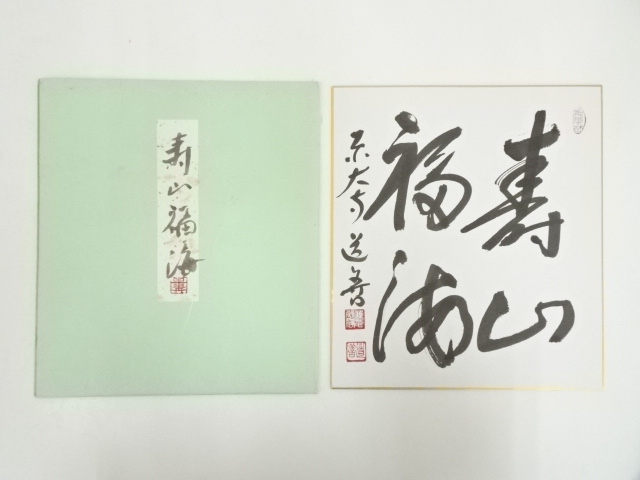 寿山福海
寿山
福海
東大寺 道善